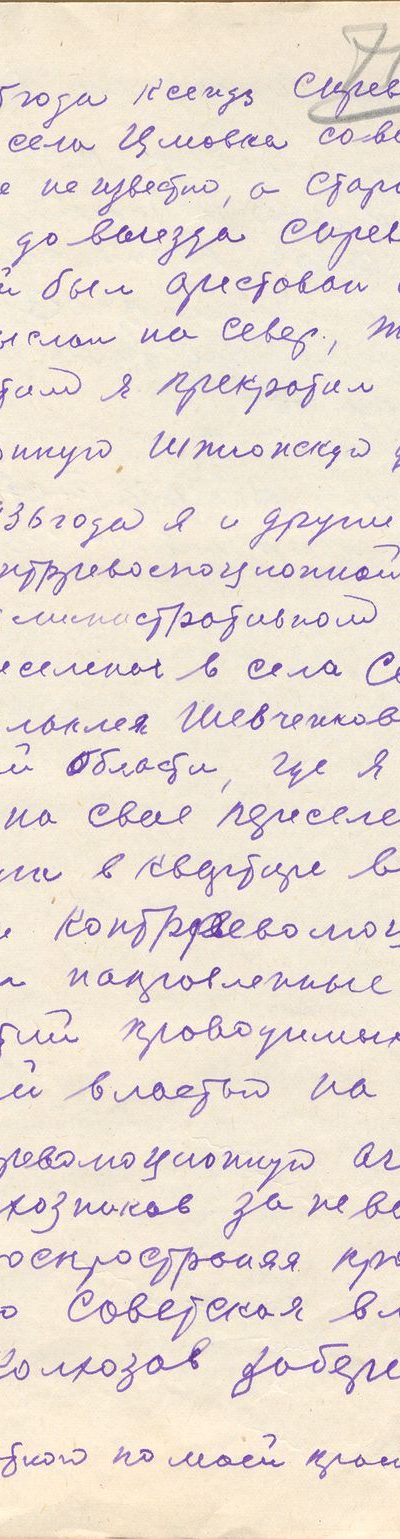 71
6года Ксендз Сирев
села Цмовка сов
е неизвестно, а Стар
до выезда Сирев
й был арестован
ыслан на север, Ж
тим я прекратил
онную Шпионскую
936 года я и други
нтрревоспоционной
министративном
еселены в села Се
лаклея Шевченков
й области, где я
на свае переселе
ти в квартире в
и контрревоюц
и направленные
тий проводимых
й властью на
ревоюционную аг
хозников за нево
оспространяя про
о Советская вл
Колхозов забере
ткого по моей про